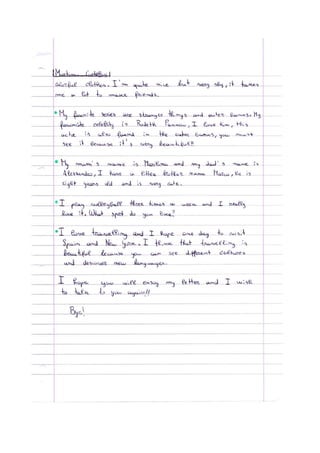 Martina Castellini
colorful clothes. I'm quite nice but very shy, it takes
me a bit to make friends.
• My favorite series are stranger things and outer banks. My
favourite celebrity is Rudeth Pankow, I love him, this
actor is also found in the outer banks, you must
see it because it's very beautiful!!
• My mum's name is Martina and my dad's name is
Alessandro, I have a little brother named Mattia, he is
eight years old and is very cute.
• I play volleyball three times a week and I really
love it. What sport do you like?
• I love travelling and I hope one day to visit
Spain and New York. I think that travelling is
beautiful because you can see different cultures
and discover new languages.
I hope you will enjoy my letter and I wish
to talk to you again!!
Bye!